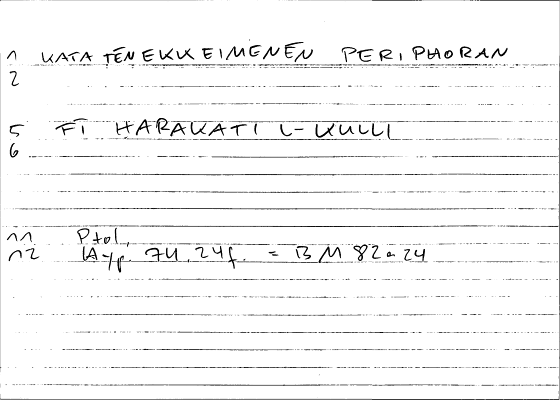 1 KATA TĒN EKKEIMENĒN PERIPHORAN
2
5 FĪ ḤARAKATI L-KULLI
6
11 Ptol.
12 Hyp. 74,24f. = BM 82a24